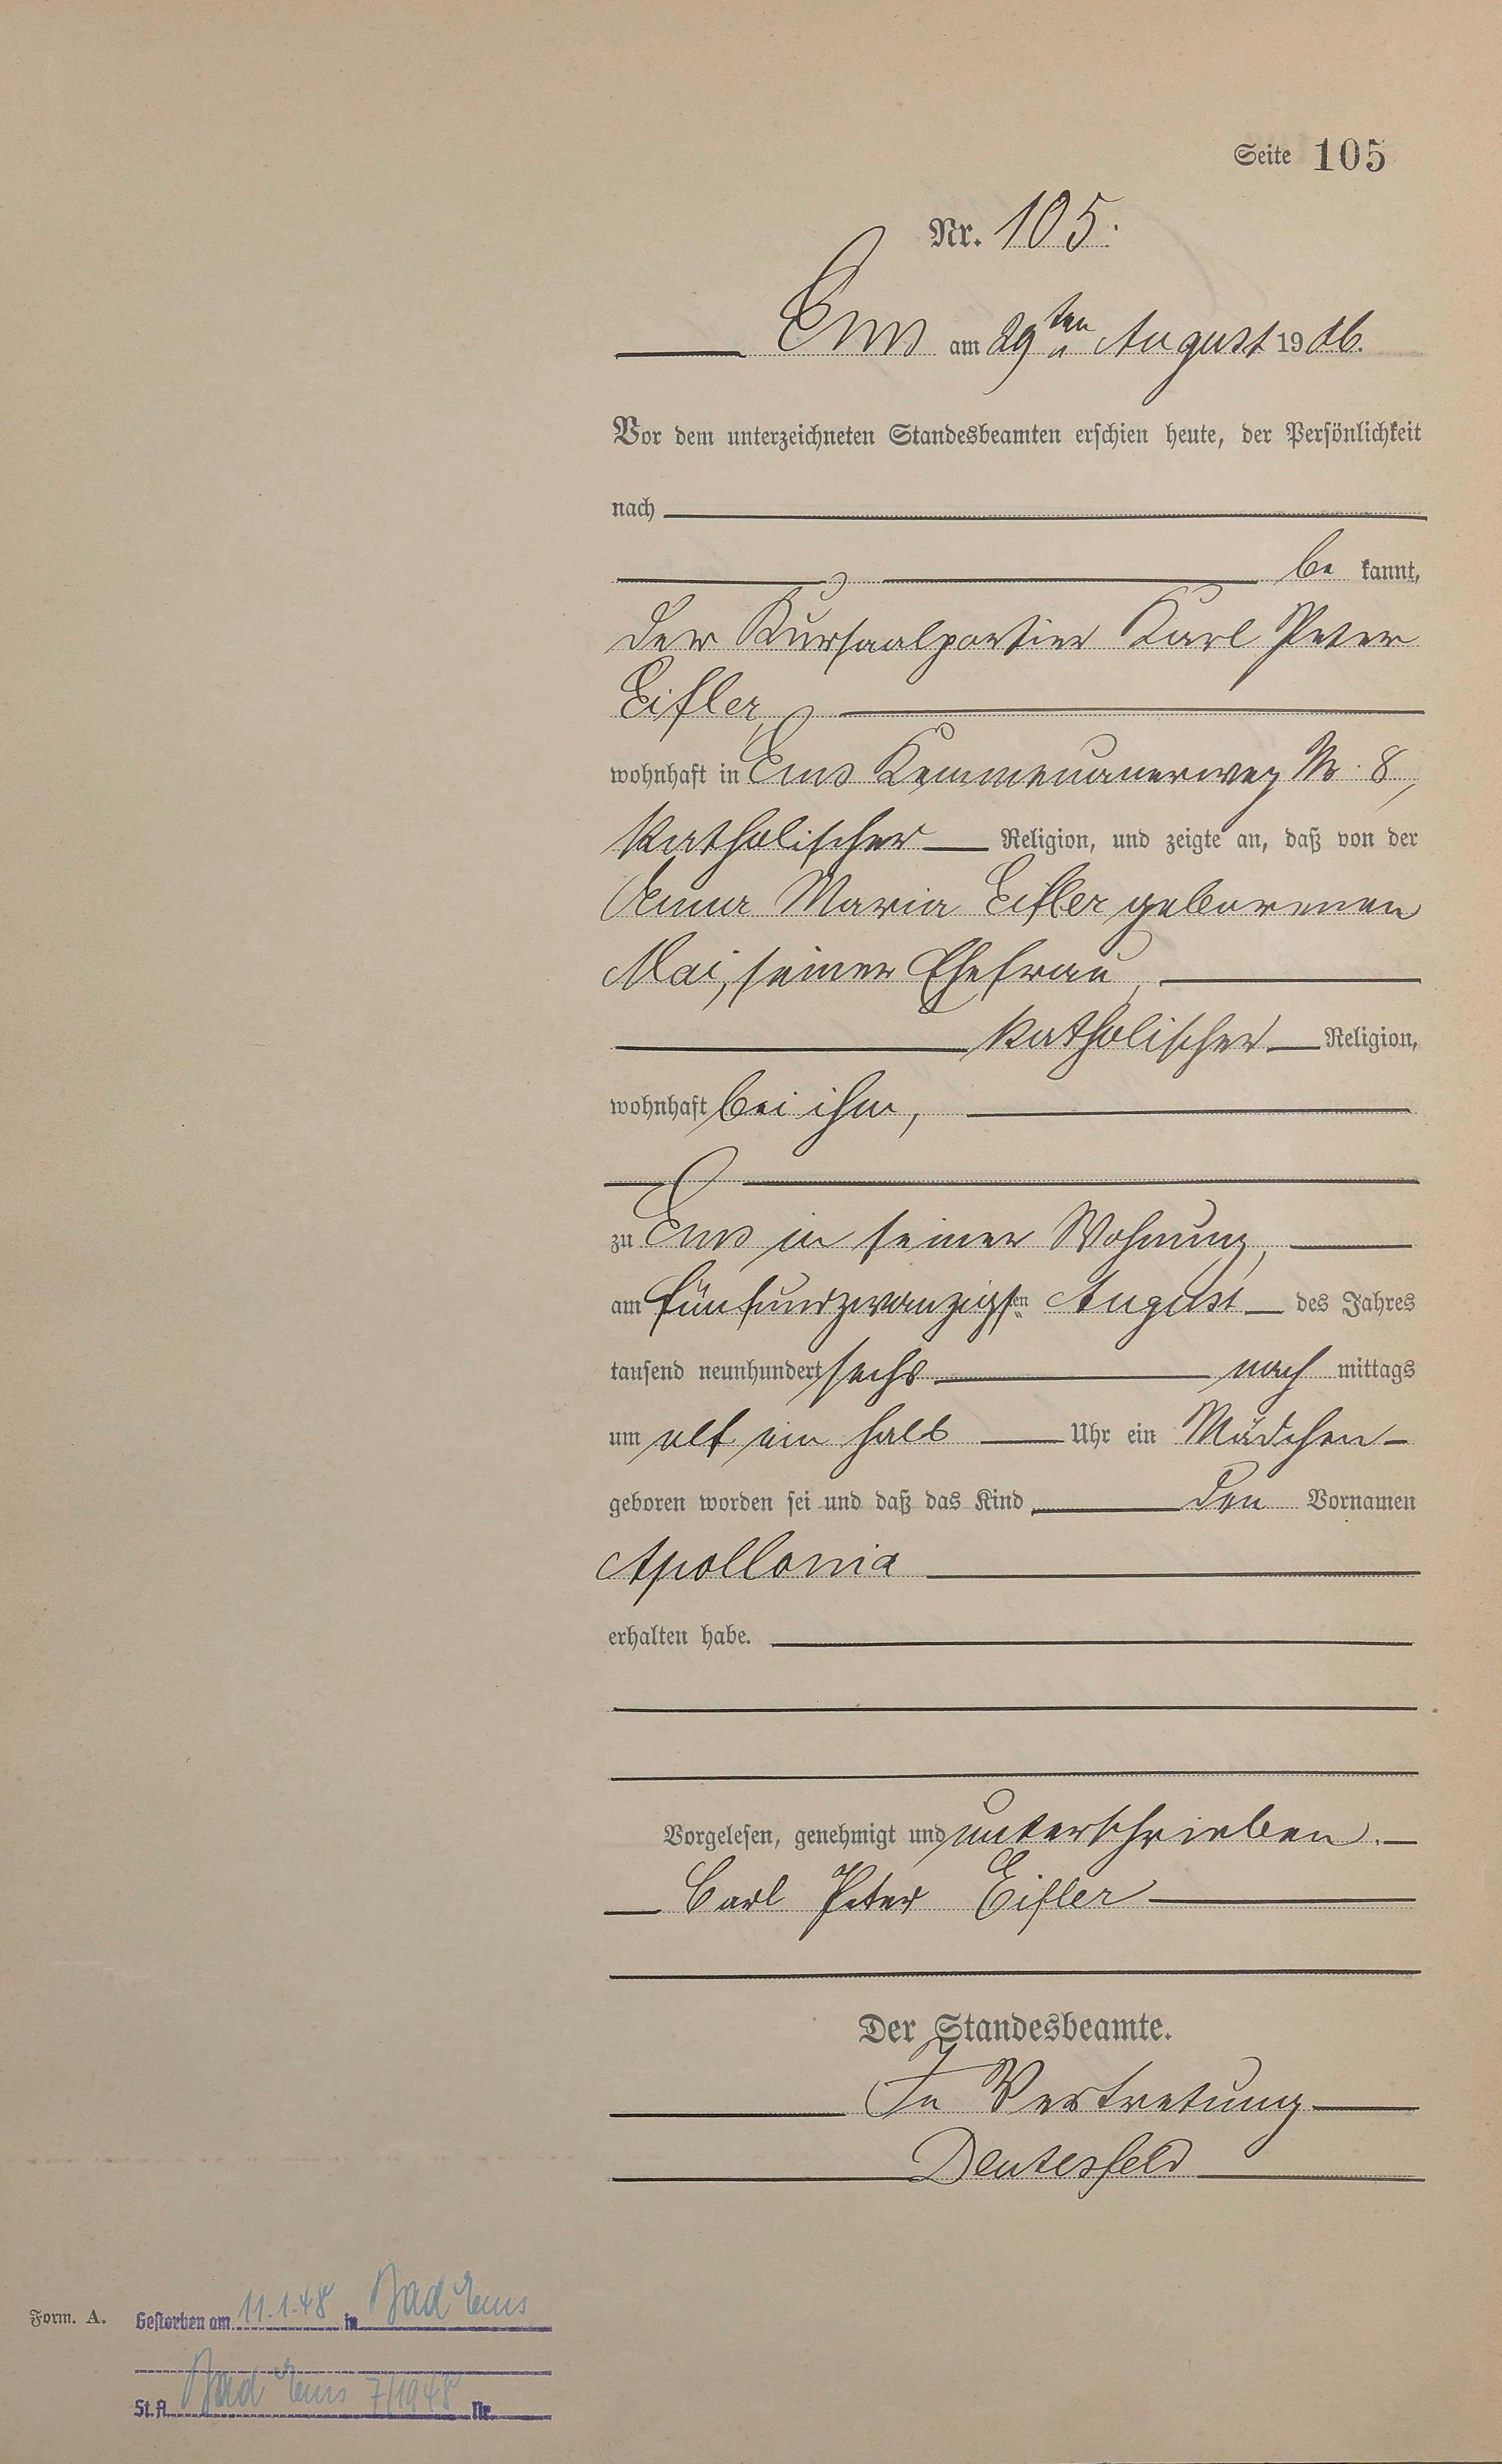 Seite 105
Nr. 105.
Ems am 29ten August 1906.
Vor dem unterzeichneten Standesbeamten erschien heute, der Persönlichkeit
nach
be kannt,
der Kursaalportier Karl Peter
Eifler,
wohnhaft in Ems Kemmenauerweg Nr. 8,
katholischer Religion, und zeigte an, daß von der
Anna Maria Eifler geborenen
Mai, seiner Ehefrau,
katholischer Religion,
wohnhaft bei ihm,
zu Ems in seiner Wohnung,
am fünfundzwanzigsten August des Jahres
tausend neunhundert sechs nach mittags
um elf ein halb Uhr ein Mädchen
geboren worden sei und daß das Kind den Vornamen
Apollonia
erhalten habe.
Vorgelesen, genehmigt und unterschrieben.
Carl Peter Eifler
Der Standesbeamte.
In Vertretung
Deutesfeld
Form. A. Gestorben am 11.1.48 in Bad Ems
St. A. Bad Ems 7/1948 Nr.